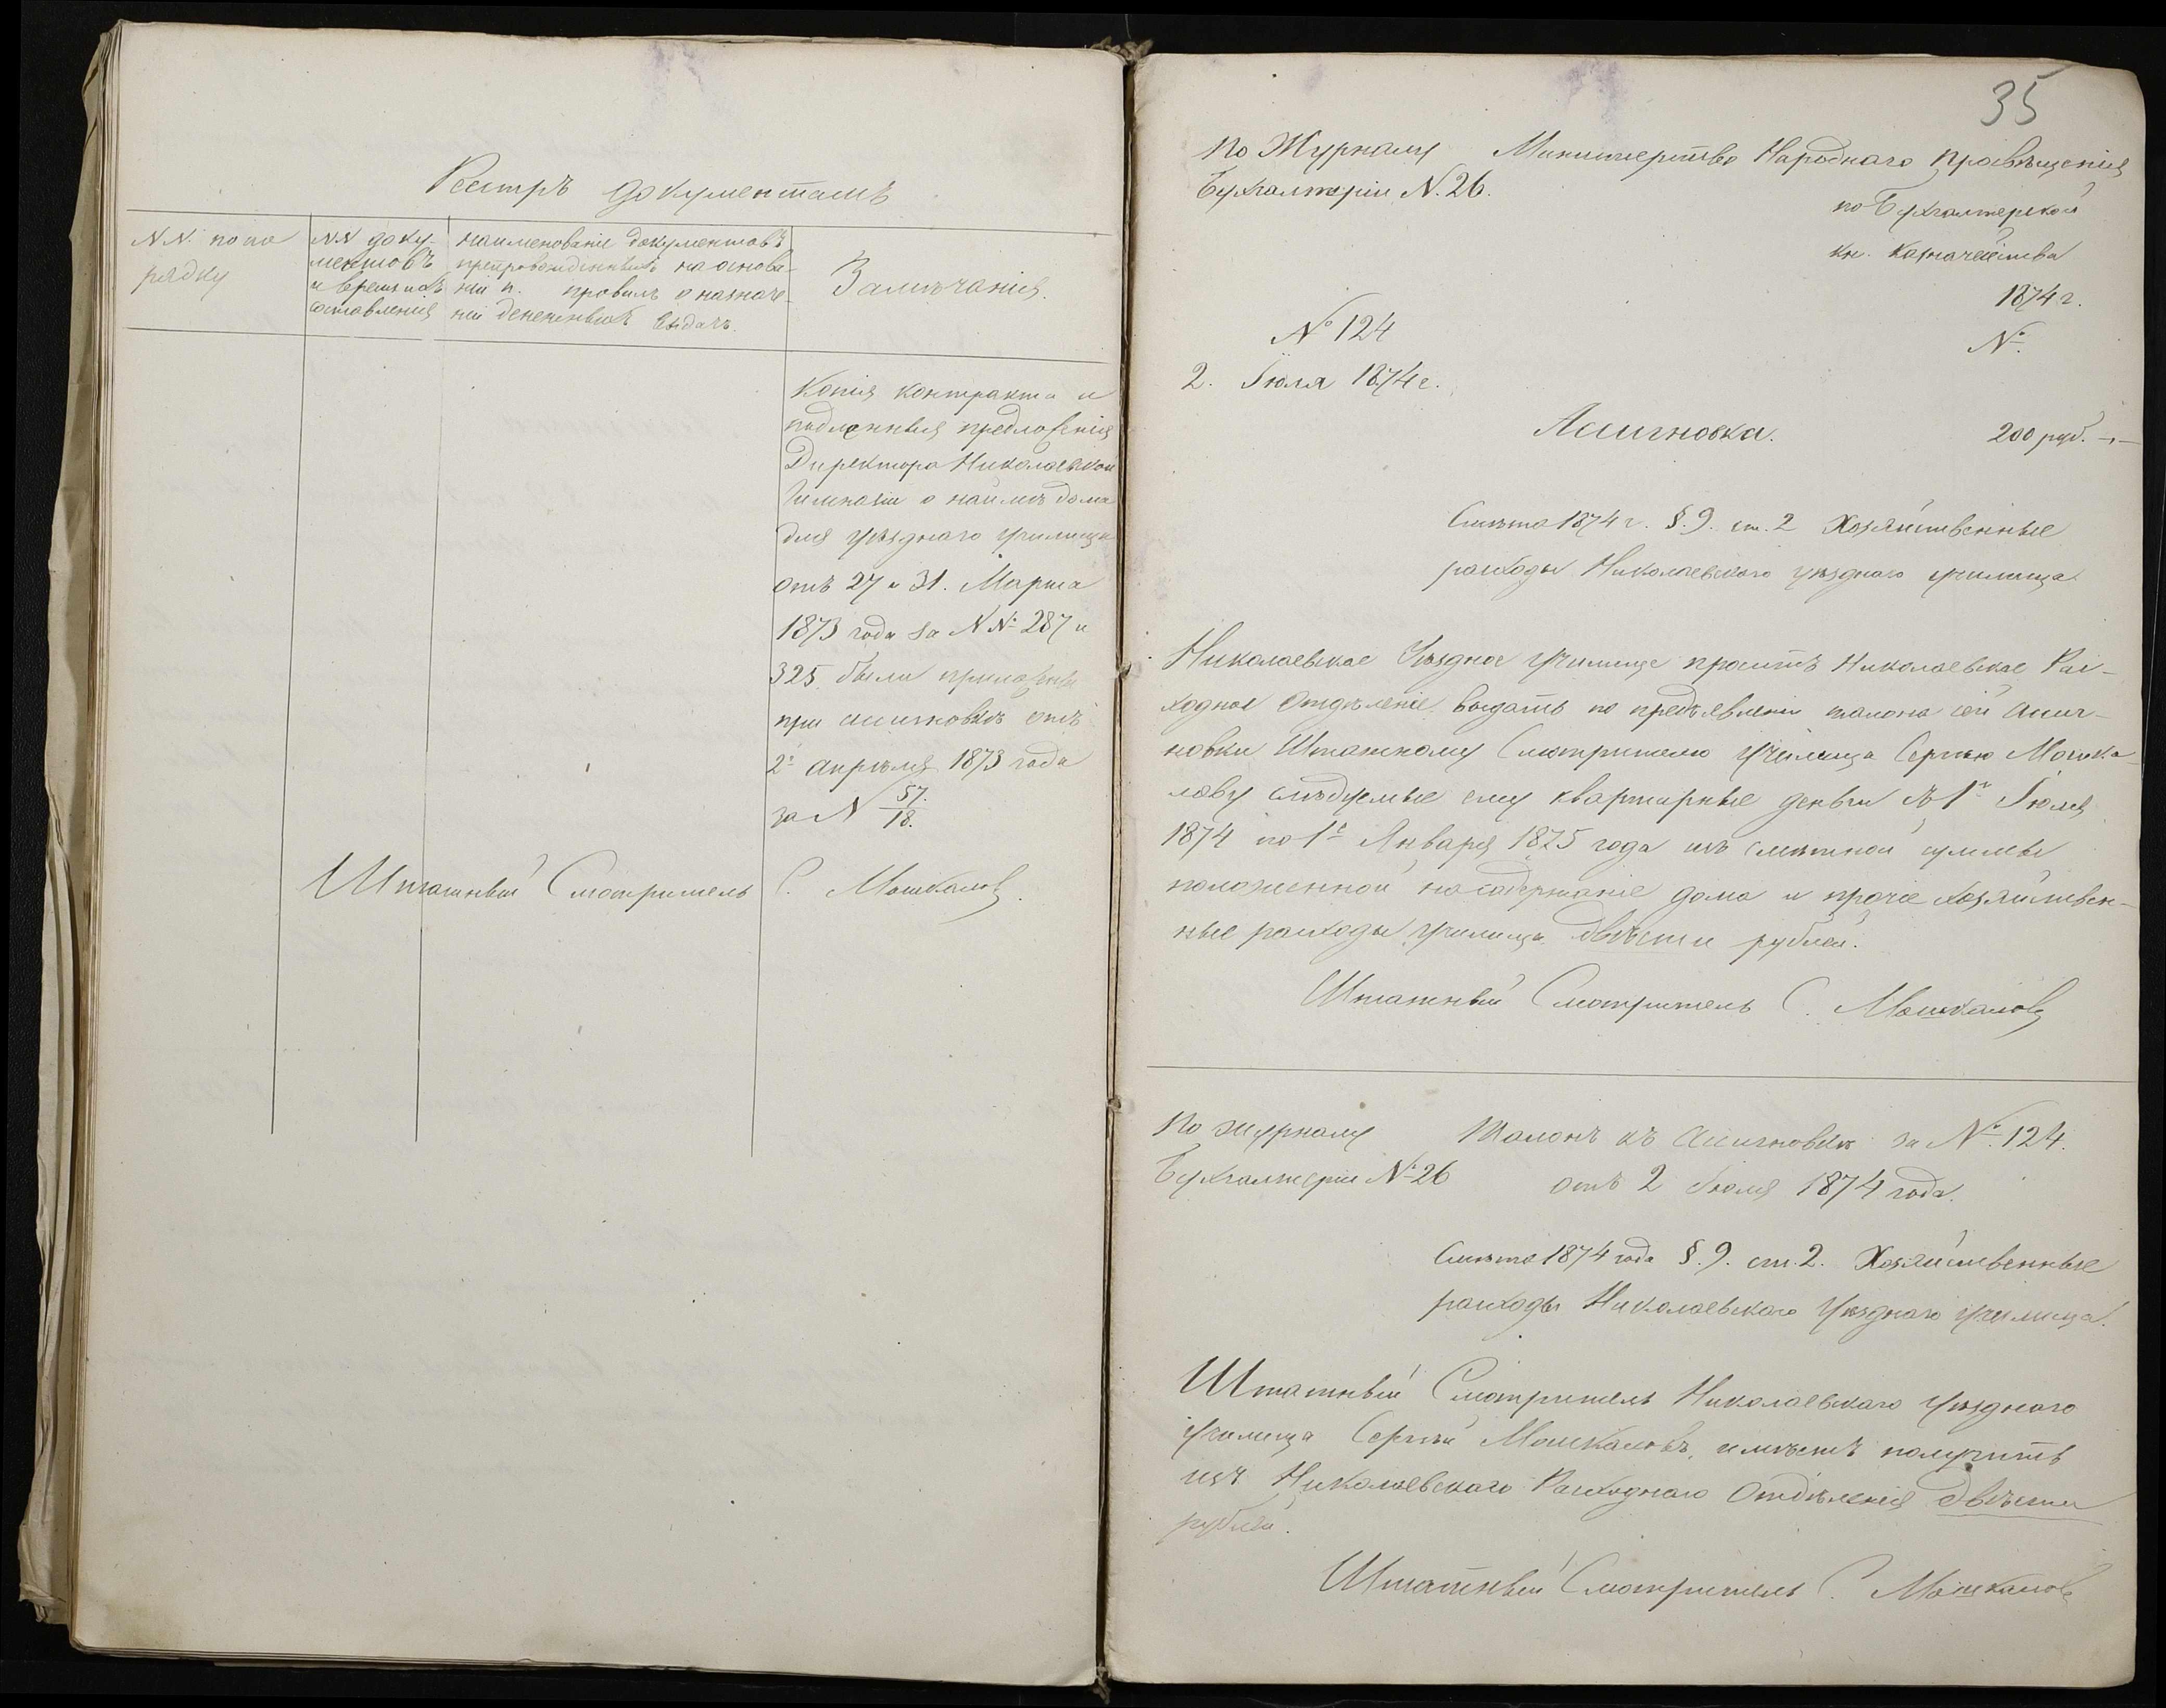 Реестръ документамъ
N.N. по по
рядку
NN доку-
ментовъ
и время ихъ
составленія
наименованіе документовъ
препровожденныхъ на основа-
ніи п. правилъ о назначе-
ніи денежныхъ выдачъ.
Замѣчанія.
Копія контракта и
подленныя предложенія
Директора Николаевской
Гимназіи о наймѣ дома
для уѣзднаго училища
отъ 27 и 31. Марта
1873 года за NNº 287 и
325 были приложены
при ассигновкѣ отъ
2º апрѣля 1873 года
за N 57./18.
Штатный Смотритель С. Мошкаловъ.
35
По Журналу
Бухгалтеріи N. 26.
Министерство Народнаго Просвѣщенія
по Бухгалтерской
кн. Казначейства
1874 г.
Nº.
Nº 124
2. Іюля 1874 г.
Ассигновка. 200 руб. -"-
Смѣта 1874 г. §. 9. ст. 2 Хозяйственные
расходы Николаевскаго уѣзднаго училища
Николаевское Уѣздное училище проситъ Николаевское Рас-
ходное Отдѣленіе выдать по предъявленіи талона сей ассиг-
новки Штатному Смотрителю училища Сергѣю Мошка-
лову слѣдуемые ему квартирные деньги съ 1º Іюля
1874 по 1º Января 1875 года изъ смѣтной суммы
положенной на содержаніе дома и прочіе хозяйствен-
ные расходы училища двѣсти рублей.
Штатный Смотритель С. Мошкаловъ
По журналу
Бухгалтеріи Nº 26
Талонъ къ Ассигновкѣ за Nº. 124.
отъ 2 Іюля 1874 года.
Смѣта 1874 года §. 9. ст. 2. Хозяйственные
расходы Николаевскаго Уѣзднаго училища.
Штатный Смотритель Николаевскаго Уѣзднаго
училища Сергѣй Мошкаловъ, имѣетъ получить
изъ Николаевскаго Расходнаго Отдѣленія двѣсти
рублей.
Штатный Смотритель С. Мошкаловъ